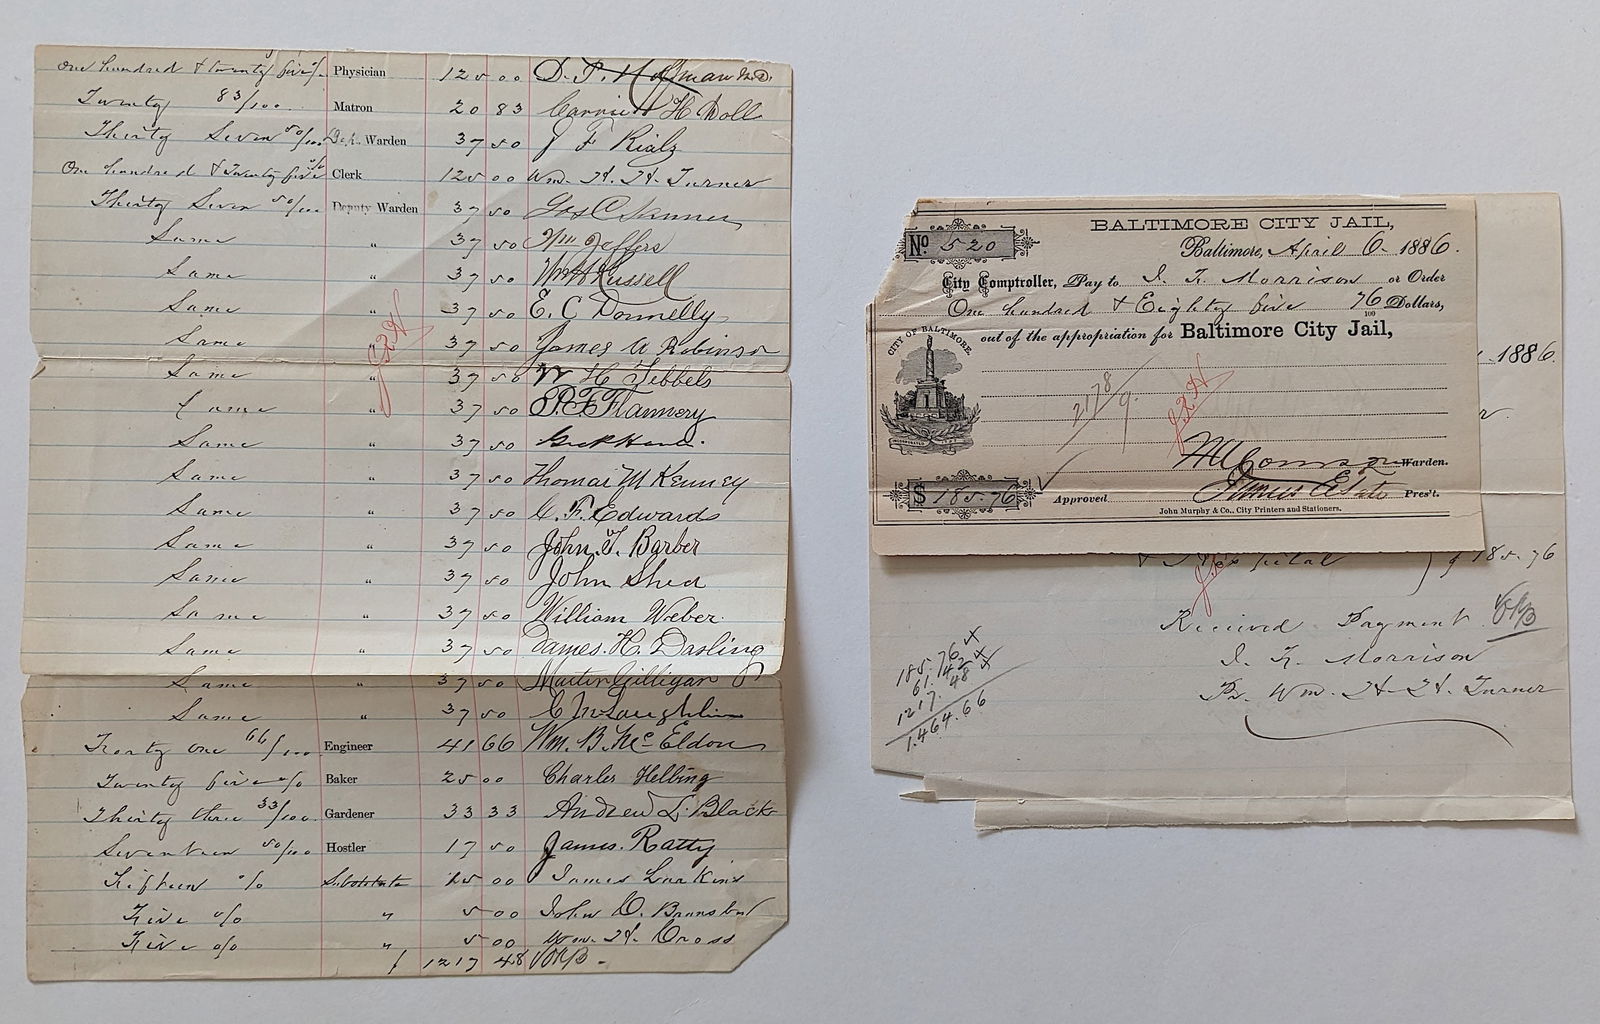 One hundred & twenty five %  Physician  125 00  D. P. Hoffman M.D.
Twenty 83/100  Matron  20 83  Carrie H Doll
Thirty Seven 50/100  Dep. Warden  37 50  J F Rialz
One hundred & Twenty five %  Clerk  125 00  Wm. H. H. Turner
Thirty Seven 50/100  Deputy Warden  37 50  Jas C Skinner
Same  "  37 50  Wm Jeffers
Same  "  37 50  Wm H Russell
Same  "  37 50  E. C Donnelly
Same  "  37 50  James W Robinson
Same  "  37 50  W H Tibbels
Same  "  37 50  P. F Flannery
Same  "  37 50
Same  "  37 50  Thomas M Kenney
Same  "  37 50  G. F. Edwards
Same  "  37 50  John. T. Barber
Same  "  37 50  John Shea
Same  "  37 50  William Weber.
Same  "  37 50  James. H. Darling
Same  "  37 50  Martin Gilligan
Same  "  37 50  C McLaughlin
Forty one 66/100  Engineer  41 66  Wm. B. Mc Eldon
Twenty five %  Baker  25 00  Charles Helbing
Thirty three 33/100  Gardener  33 33  Andrew L. Black
Seventeen 50/100  Hostler  17 50  James. Ratty
Fifteen %  Substitute  15 00  James Larkins
Five %  "  5 00  John
Five %  "  5 00  Wm. H. Cross
1217 48
BALTIMORE CITY JAIL,
No 520
Baltimore, April 6 1886.
City Comptroller, Pay to I. F. Morrison or Order
One hundred & Eighty five 76/100 Dollars,
out of the appropriation for Baltimore City Jail,
CITY OF BALTIMORE.
2178/9.
J.R.H
Warden.
$ 185.76
Approved James E Tate Pres't.
John Murphy & Co., City Printers and Stationers.
1886.
& Hospital } $ 185.76
Received Payment
I. F. Morrison
Pr. Wm. H. H. Turner
185.76
61.42
1217.48
1.464.66